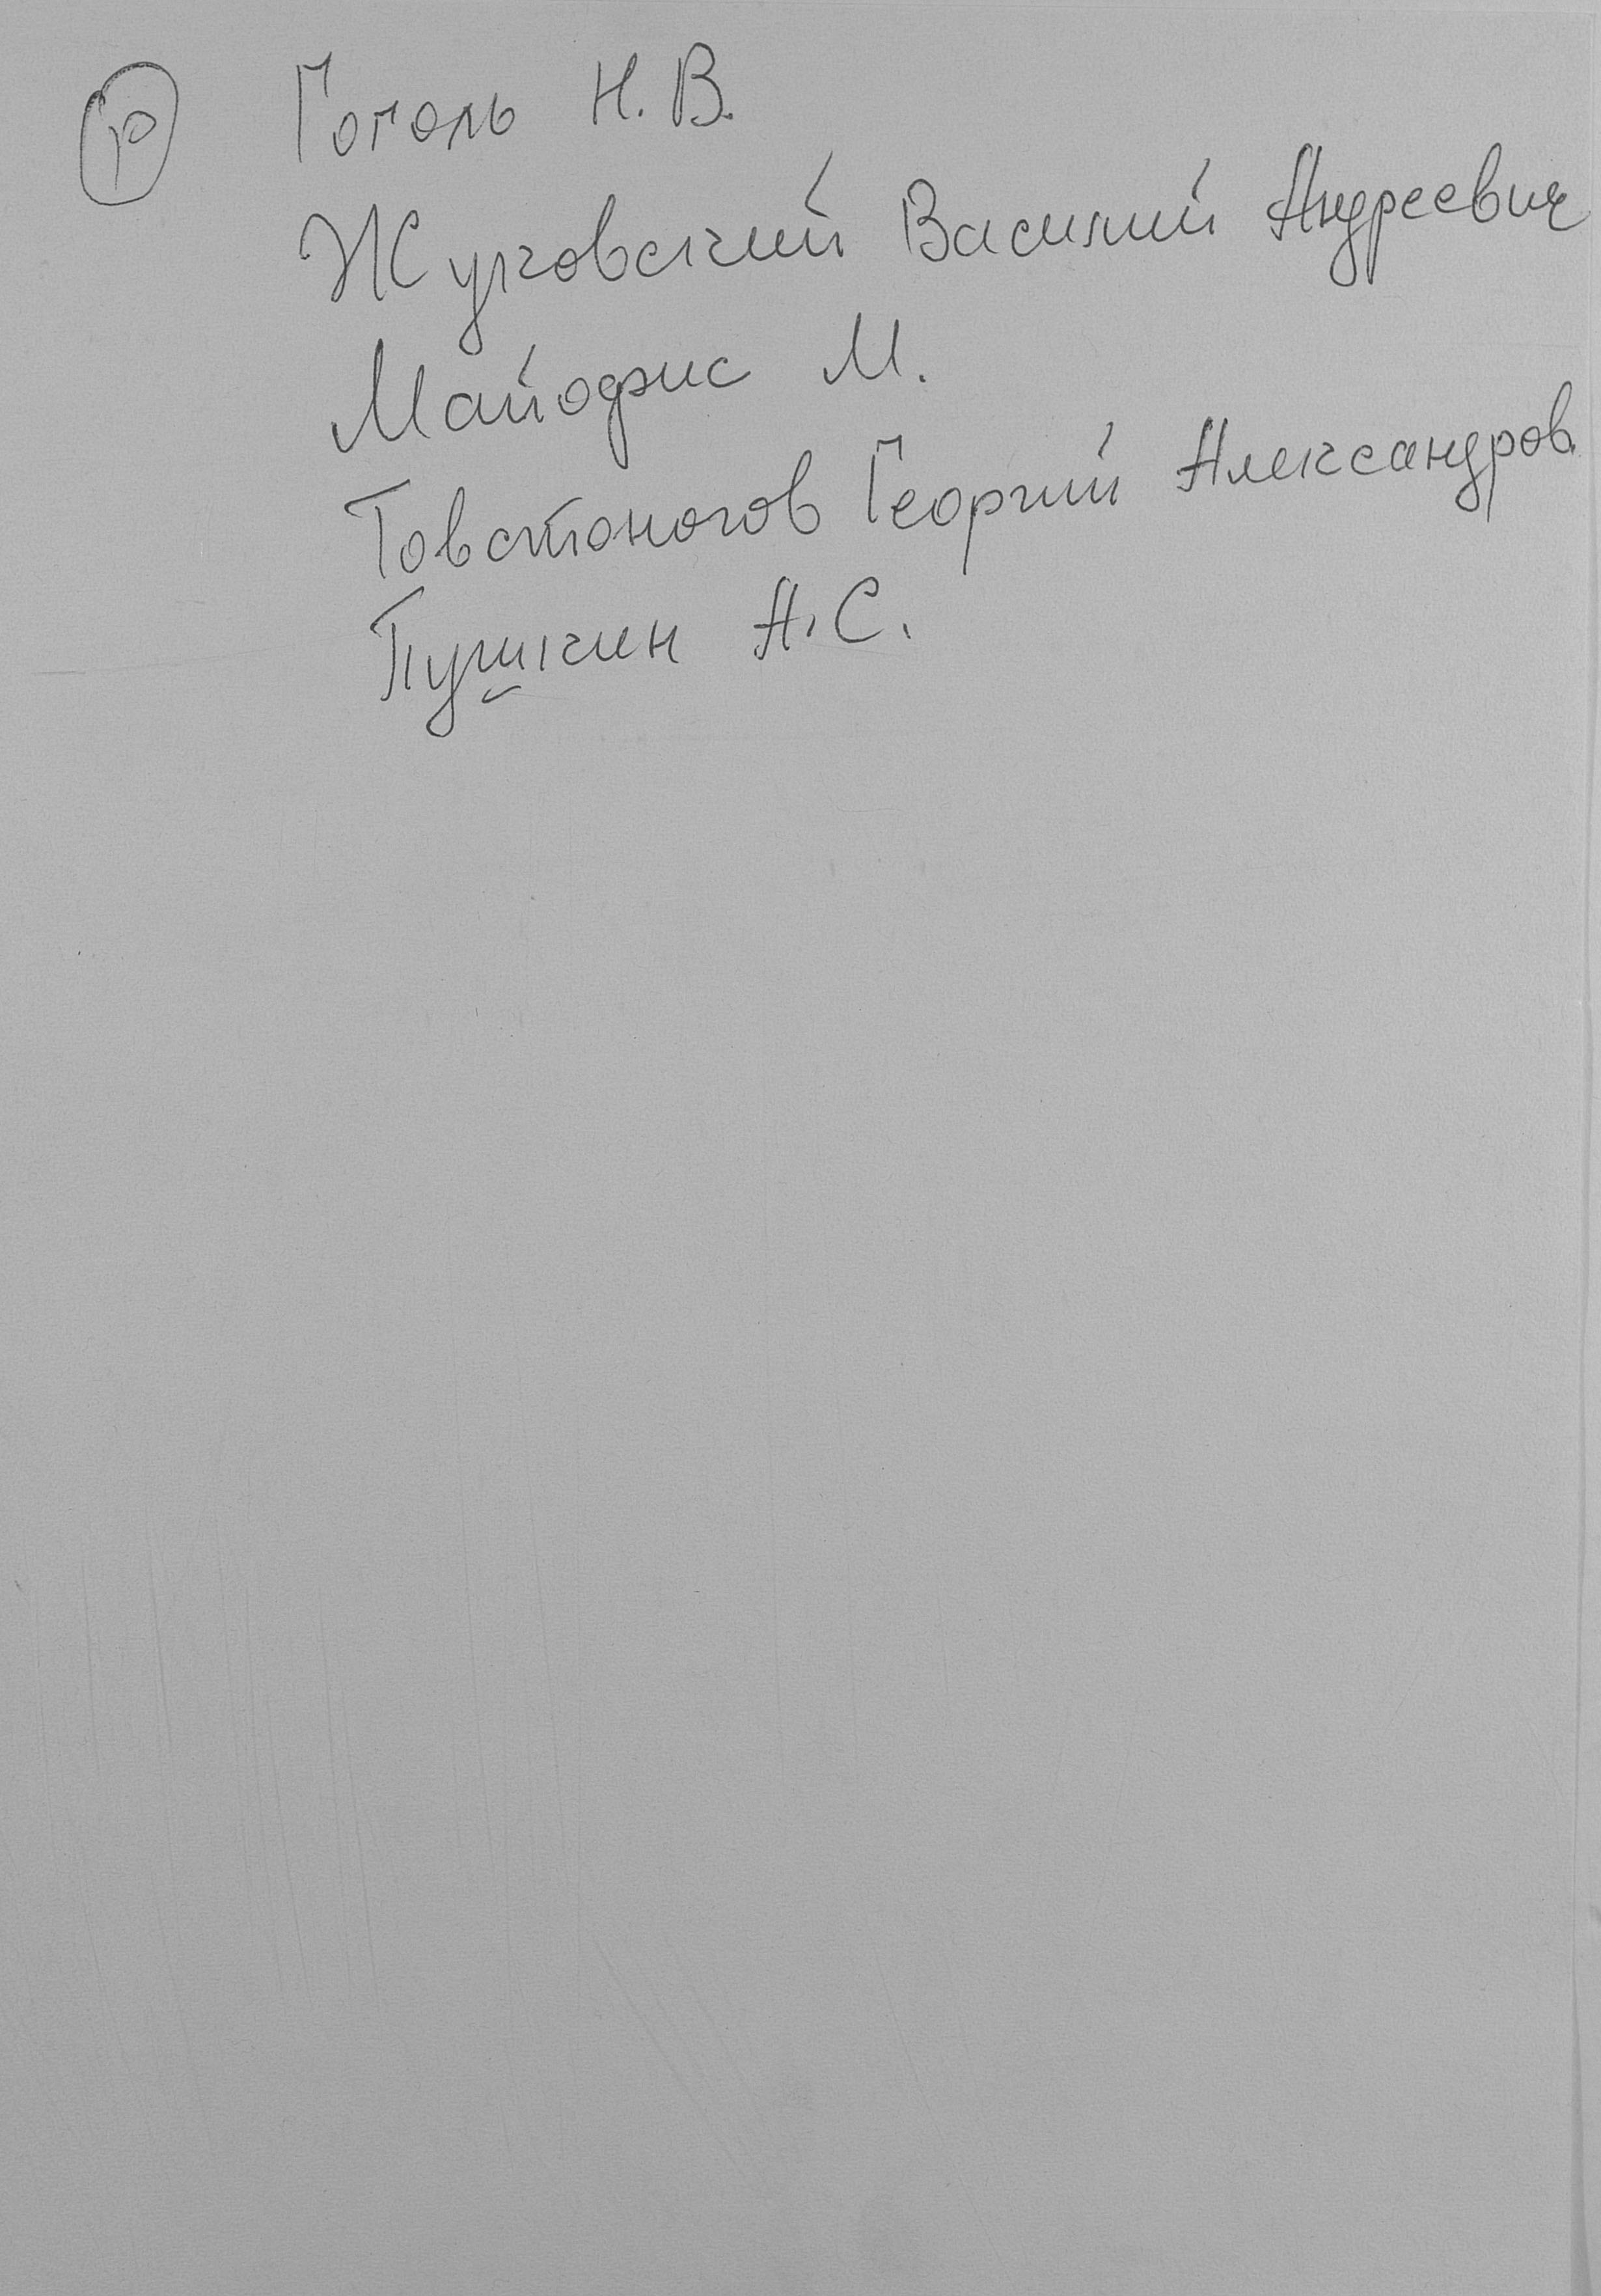 Р Гоголь Н. В.
Жуковский Василий Андреевич
Майофис М.
Товстоногов Георгий Александров.
Пушкин А. С.